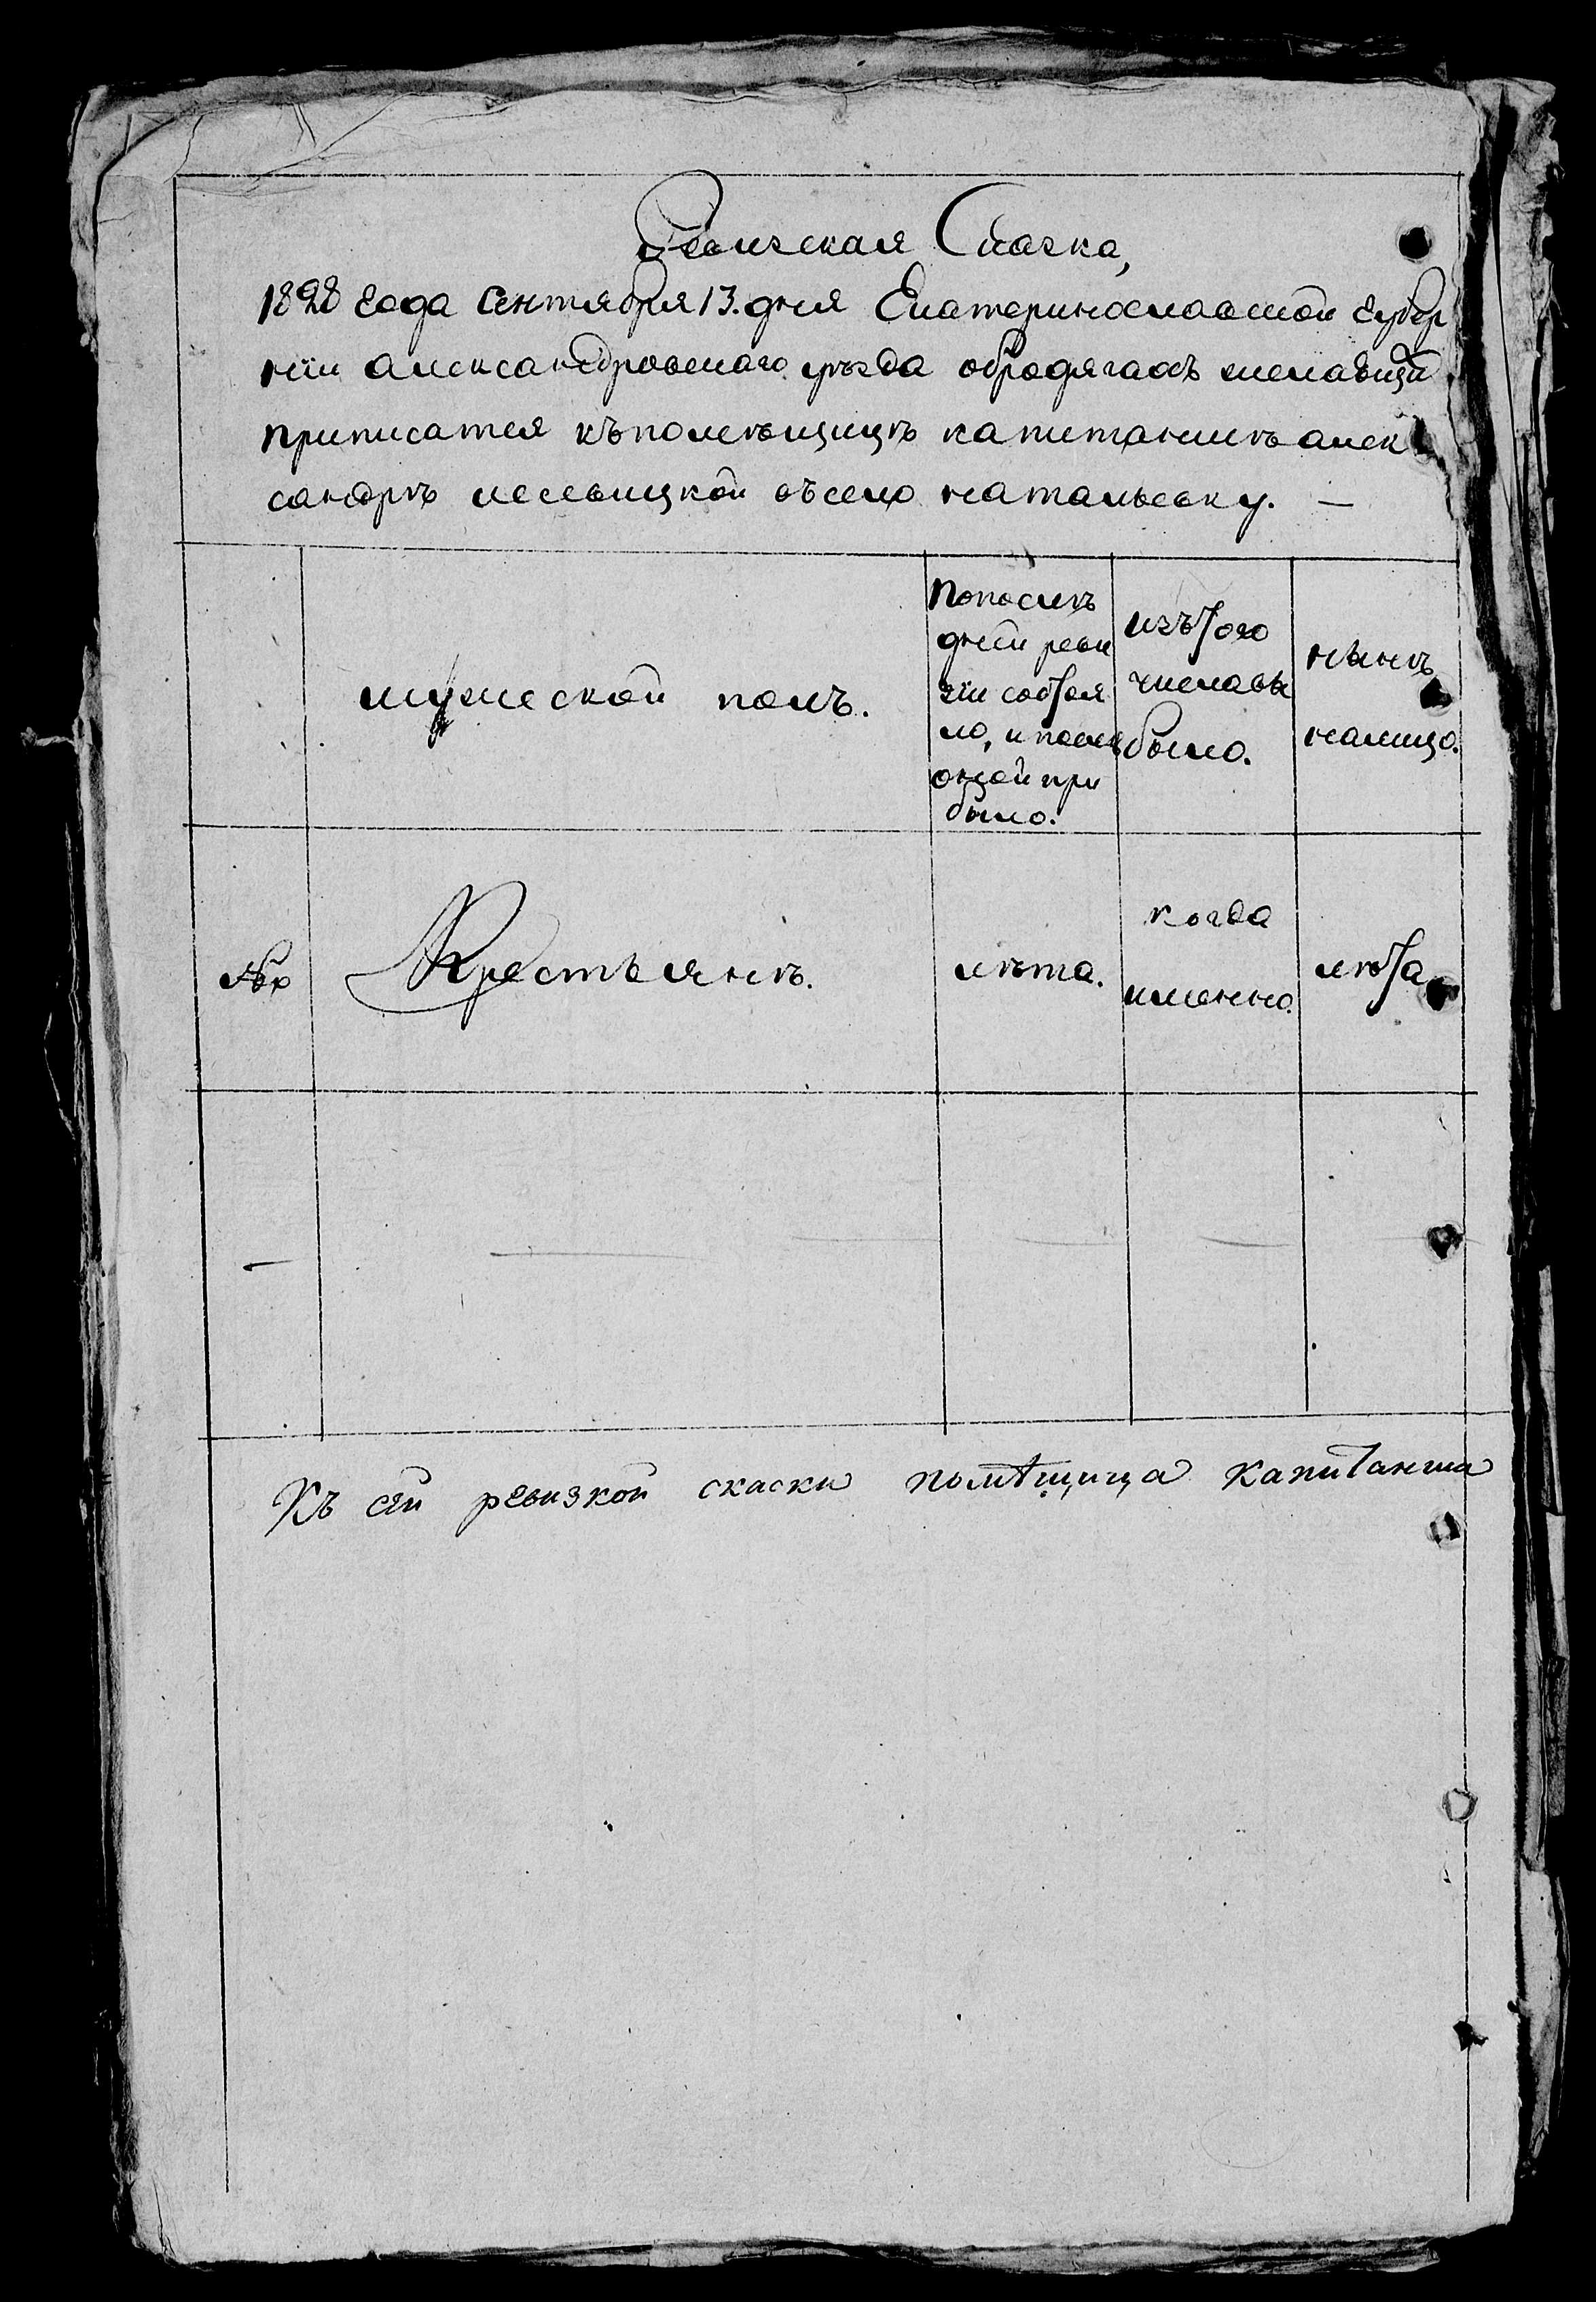 Ревизская Сказка,
1828 года Сентября 13. дня Екатеринославской губер
нiи александровскаго уѣзда обродягахъ желающи
приписатся къ помѣщицѣ капитаншѣ алек
сандрѣ лесевицкой въ село натальевку. —
мужеской полъ.
Попослѣ
дней реви
зiи состоя
ло, и послѣ
оной при
было.
изътого
числавы
было.
нынѣ
налицо.
№р
Крестьянѣ.
лѣта.
когда
именно.
лѣта
Къ сей ревизкой скаски помѣщица капитанша